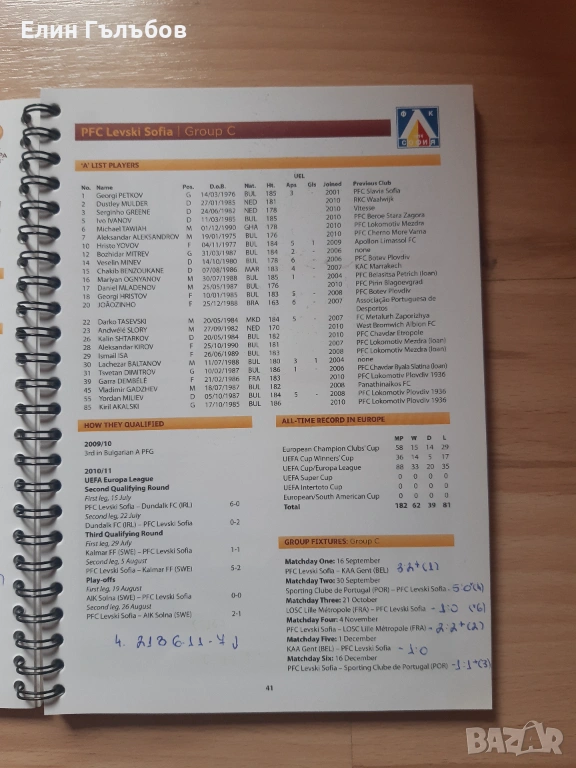 Елин Гълъбов
PFC Levski Sofia | Group C
Ф К
СОФИЯ
'A' LIST PLAYERS
UEL
No. Name Pos. D.o.B. Nat. Ht. Aps Gls Joined Previous Club
1 Georgi PETKOV G 14/03/1976 BUL 185 3 - 2001 PFC Slavia Sofia
2 Dustley MULDER D 27/01/1985 NED 181 2010 RKC Waalwijk
3 Serginho GREENE D 24/06/1982 NED 178 2010 Vitesse
5 Ivo IVANOV D 11/03/1985 BUL 185 2010 PFC Beroe Stara Zagora
6 Michael TAWIAH M 01/12/1990 GHA 178 2010 PFC Lokomotiv Mezdra
7 Aleksandar ALEKSANDROV M 19/01/1975 BUL 176 2010 PFC Cherno More Varna
10 Hristo YOVOV F 04/11/1977 BUL 184 5 1 2009 Apollon Limassol FC
12 Bozhidar MITREV G 31/03/1987 BUL 184 2 - 2006 none
14 Veselin MINEV D 14/10/1980 BUL 178 6 - 2006 PFC Botev Plovdiv
15 Chakib BENZOUKANE D 07/08/1986 MAR 183 4 - 2007 KAC Marrakech
16 Mariyan OGNYANOV M 30/07/1988 BUL 185 1 - 2004 PFC Belasitsa Petrich (loan)
17 Daniel MLADENOV M 25/05/1987 BUL 176 2010 PFC Pirin Blagoevgrad
18 Georgi HRISTOV F 10/01/1985 BUL 183 5 - 2008 PFC Botev Plovdiv
20 JOÃOZINHO F 25/12/1988 BRA 163 6 - 2007 Associação Portuguesa de
Desportos
22 Darko TASEVSKI M 20/05/1984 MKD 184 5 - 2007 FC Metalurh Zaporizhya
23 Andwélé SLORY M 27/09/1982 NED 170 2010 West Bromwich Albion FC
26 Kalin SHTARKOV D 20/05/1984 BUL 2010 PFC Chavdar Etropole
28 Aleksandar KIROV F 25/10/1990 BUL 181 2007 PFC Lokomotiv Mezdra (loan)
29 Ismail ISA F 26/06/1989 BUL 183 2008 PFC Lokomotiv Mezdra (loan)
30 Lachezar BALTANOV M 11/07/1988 BUL 180 3 1 2004 none
31 Tsvetan DIMITROV G 10/02/1987 BUL 186 1 - 2006 PFC Chavdar Byala Slatina (loan)
39 Garra DEMBÉLÉ F 21/02/1986 FRA 183 2010 PFC Lokomotiv Plovdiv 1936
45 Vladimir GADZHEV M 18/07/1987 BUL 182 2008 Panathinaikos FC
55 Yordan MILIEV D 05/10/1987 BUL 184 5 - 2008 PFC Lokomotiv Plovdiv 1936
85 Kiril AKALSKI G 17/10/1985 BUL 186 2010 PFC Lokomotiv Plovdiv 1936
HOW THEY QUALIFIED
2009/10
3rd in Bulgarian A PFG
2010/11
UEFA Europa League
Second Qualifying Round
First leg, 15 July
PFC Levski Sofia – Dundalk FC (IRL) 6-0
Second leg, 22 July
Dundalk FC (IRL) – PFC Levski Sofia 0-2
Third Qualifying Round
First leg, 29 July
Kalmar FF (SWE) – PFC Levski Sofia 1-1
Second leg, 5 August
PFC Levski Sofia – Kalmar FF (SWE) 5-2
Play-offs
First leg, 19 August
AIK Solna (SWE) – PFC Levski Sofia 0-0
Second leg, 26 August
PFC Levski Sofia – AIK Solna (SWE) 2-1
ALL-TIME RECORD IN EUROPE
MP W D L
European Champion Clubs' Cup 58 15 14 29
UEFA Cup Winners' Cup 36 14 5 17
UEFA Cup/Europa League 88 33 20 35
UEFA Super Cup 0 0 0 0
UEFA Intertoto Cup 0 0 0 0
European/South American Cup 0 0 0 0
Total 182 62 39 81
GROUP FIXTURES: Group C
Matchday One: 16 September
PFC Levski Sofia – KAA Gent (BEL)
Matchday Two: 30 September
Sporting Clube de Portugal (POR) – PFC Levski Sofia
Matchday Three: 21 October
LOSC Lille Métropole (FRA) – PFC Levski Sofia - 1:0
Matchday Four: 4 November
PFC Levski Sofia – LOSC Lille Métropole (FRA)
Matchday Five: 1 December
KAA Gent (BEL) – PFC Levski Sofia - 1:0
Matchday Six: 16 December
PFC Levski Sofia – Sporting Clube de Portugal (POR)
41
BAZAR